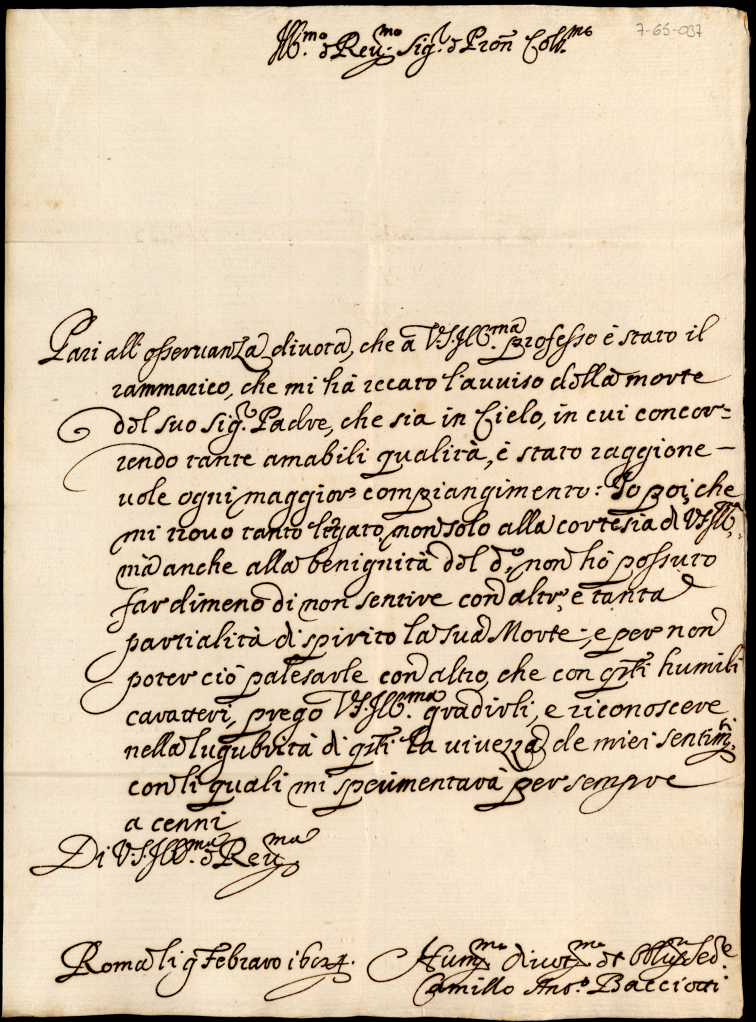 Ill.mo è Reu.mo Sig.r è Pron Coll.mo
7-65-037
Pari all'osseruanza diuota, che à V.S.Ill.ma professo è stato il
rammarico, che mi hà recato l'auuiso della morte
del suo Sig.r Padre, che sia in Cielo, in cui concor=
rendo tante amabili qualità, è stato raggione-
uole ogni maggior compiangimento: Io poi, che
mi trovo tanto legato, non solo alla cortesia di V.S.Ill.ma
mà anche alla benignità del d.o, non hò possuto
far dimeno di non sentire con altr, e tanta
partialità di spirito la sua Morte; e per non
poter ciò palesarle con altro, che con q.sti humili
caratteri, prego V.S.Ill.ma gradirli, e riconoscere
nella lugubrità di q.sti la uiuezza de miei sentim.ti
con li quali mi sperimentarà per sempre
a cenni
Di V.S.Ill.ma è Reu.ma
Roma li 9 Febraro
Hum.mo diuot.mo et Obl.mo Se.re
Camillo Ant.o Bacciotti